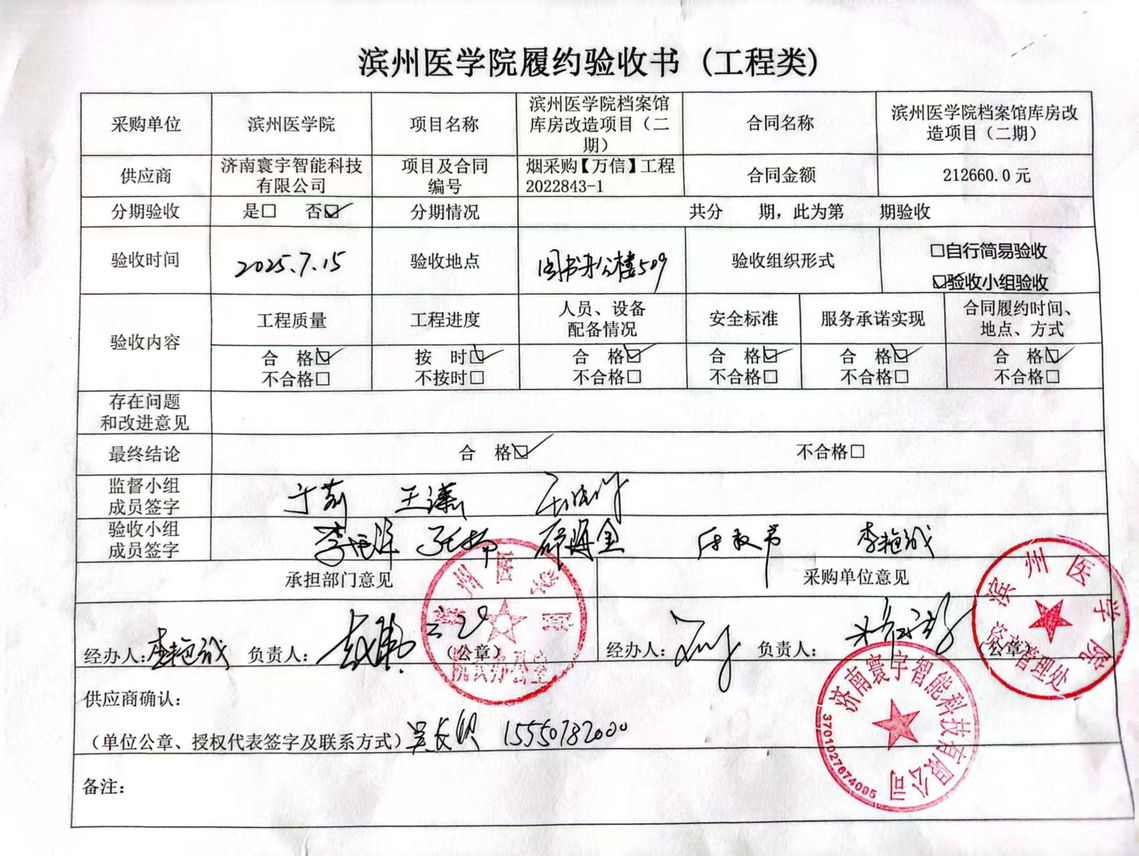 滨州医学院履约验收书（工程类）
采购单位 滨州医学院 项目名称 滨州医学院档案馆库房改造项目（二期） 合同名称 滨州医学院档案馆库房改造项目（二期）
供应商 济南寰宇智能科技有限公司 项目及合同编号 烟采购【万信】工程2022843-1 合同金额 212660.0 元
分期验收 是□ 否☑ 分期情况 共分 期，此为第 期验收
验收时间 2025.7.15 验收地点 图书办公楼509 验收组织形式 □自行简易验收
☑验收小组验收
验收内容 工程质量 工程进度 人员、设备配备情况 安全标准 服务承诺实现 合同履约时间、地点、方式
合 格☑ 按 时☑ 合 格☑ 合 格☑ 合 格☑ 合 格☑
不合格□ 不按时□ 不合格□ 不合格□ 不合格□ 不合格□
存在问题
和改进意见
最终结论 合 格☑ 不合格□
监督小组
成员签字 王潇
验收小组
成员签字 李艳诚
承担部门意见 采购单位意见
经办人：李艳诚 负责人： （公章） 经办人： 负责人： （公章）
滨州医学院
院长办公室
滨州医学院
资产管理处
供应商确认：
（单位公章、授权代表签字及联系方式） 15550782000
济南寰宇智能科技有限公司
3701027674095
备注：